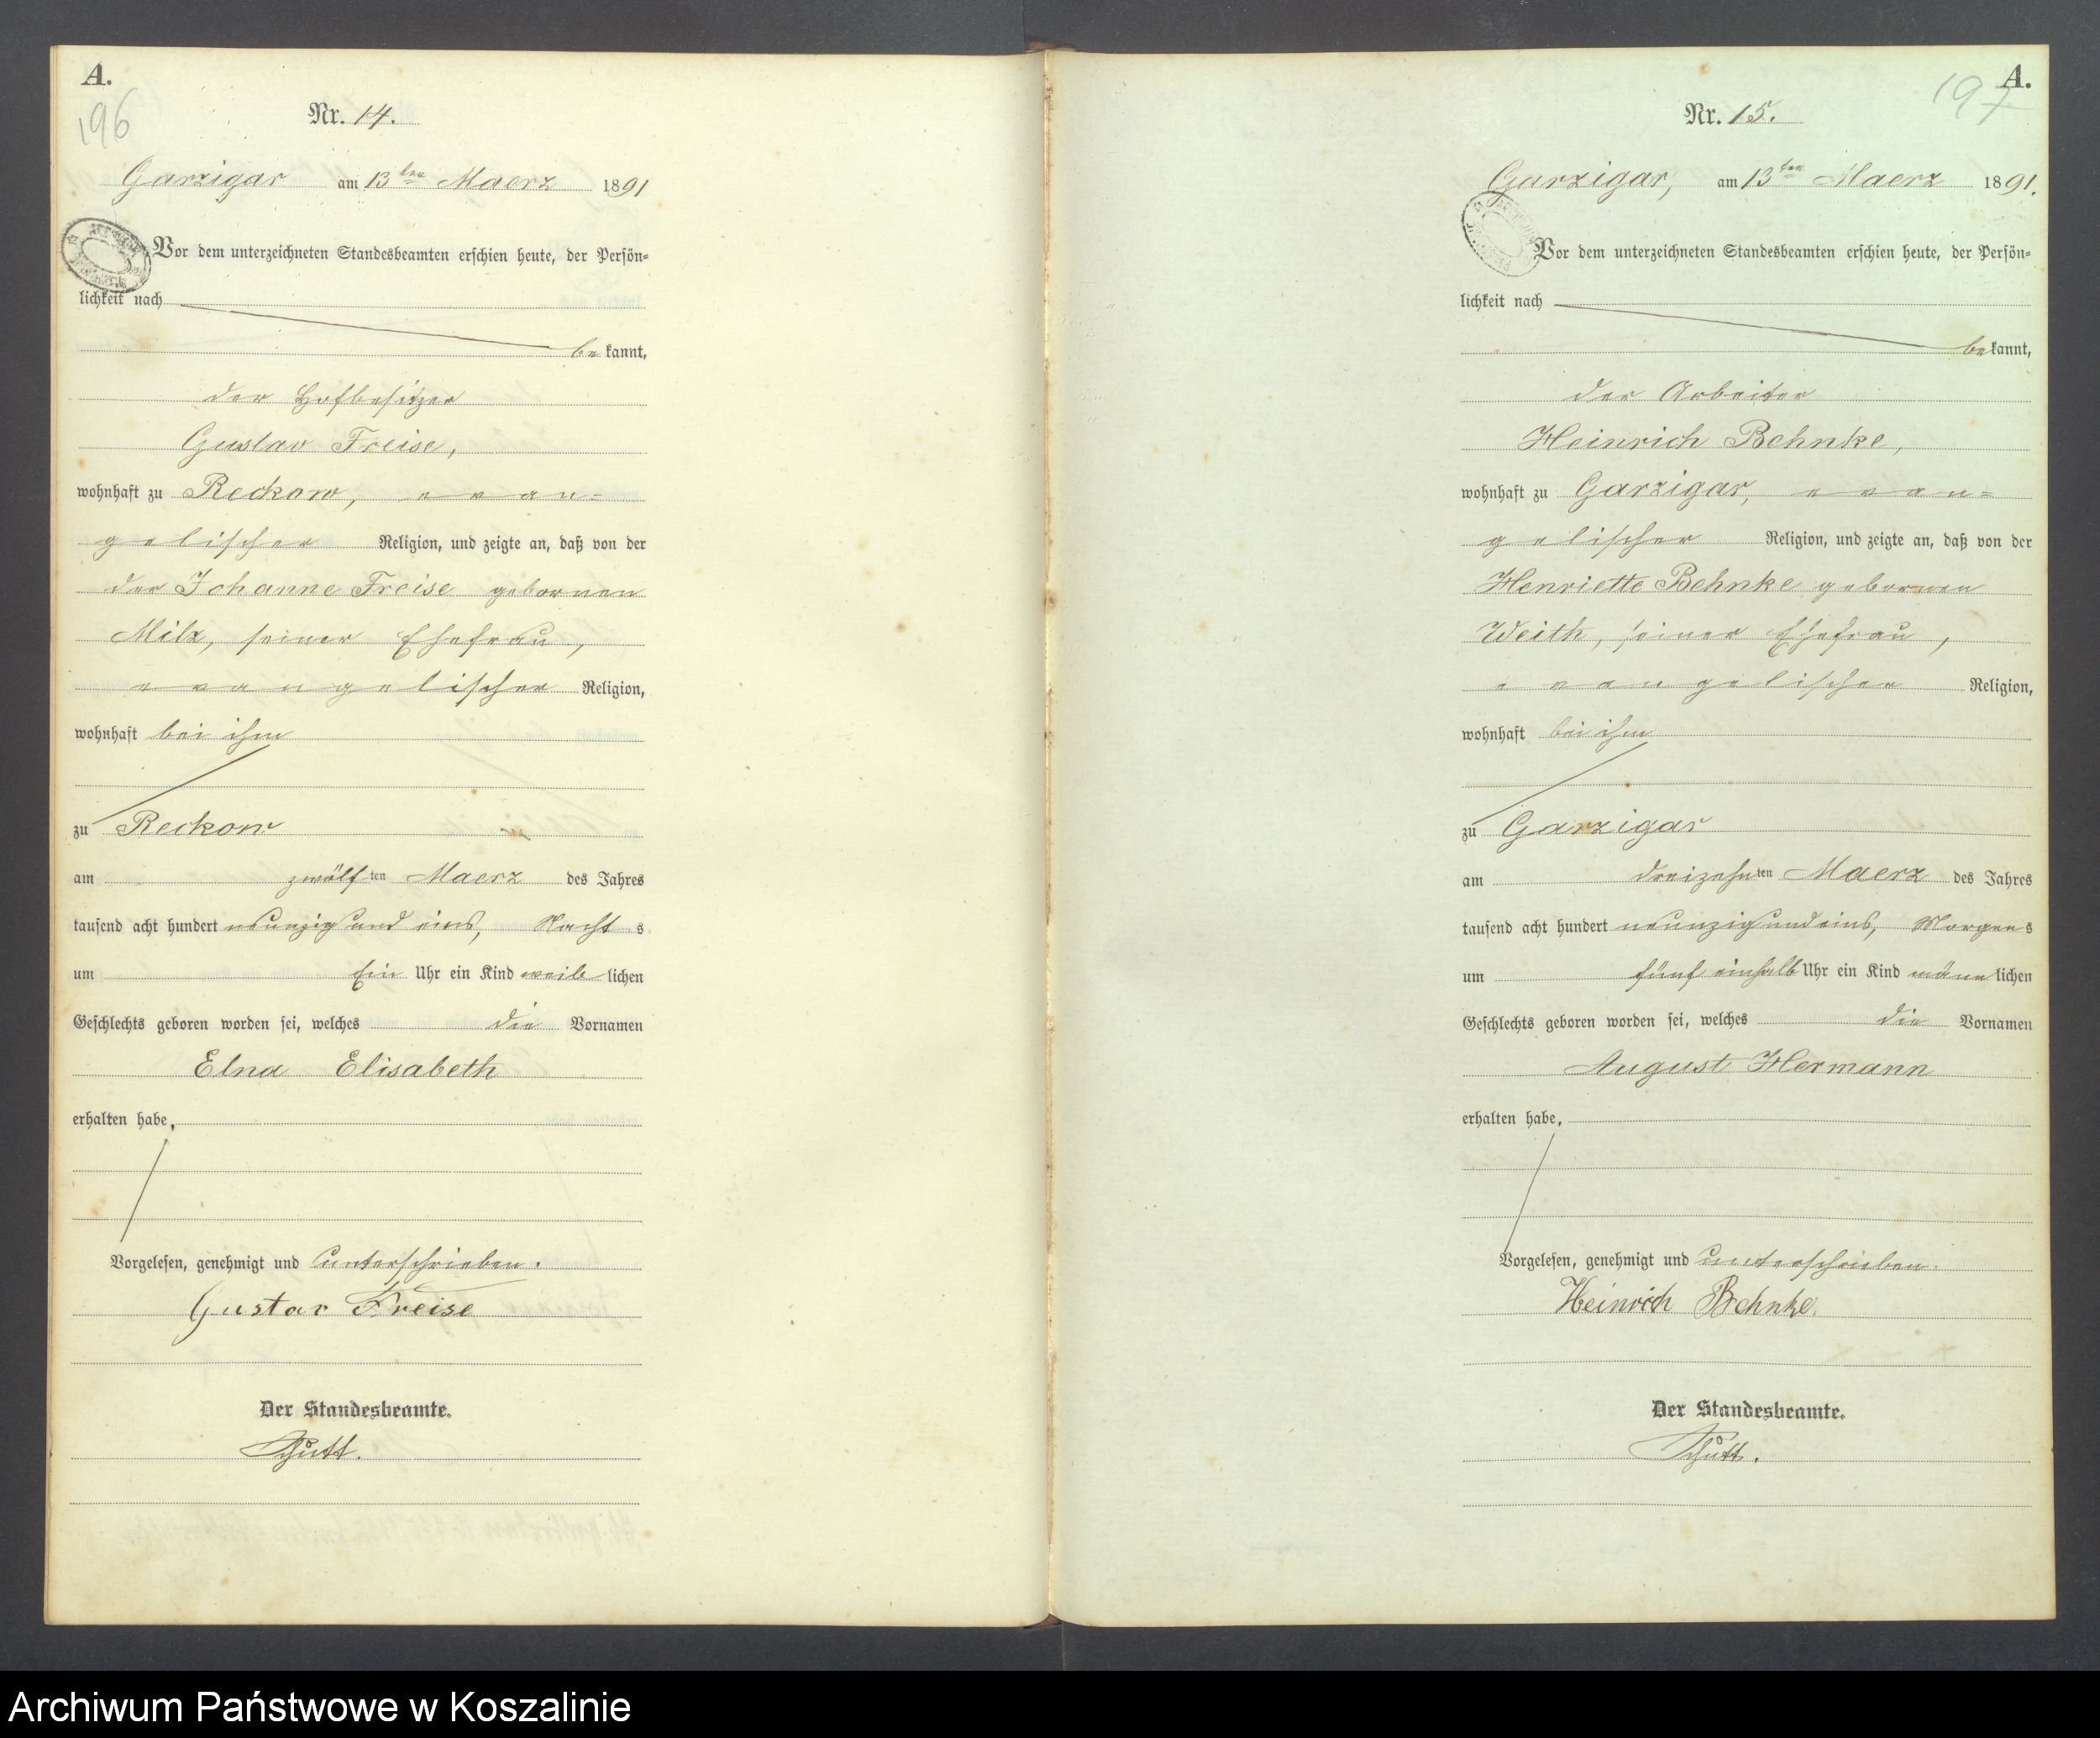 A.
196
Nr. 14.
Garzigar am 13ten Maerz 1891
Vor dem unterzeichneten Standesbeamten erschien heute, der Persön-
lichkeit nach
be kannt,
der Hofbesitzer
Gustav Freise,
wohnhaft zu Reckow, evan-
gelischer Religion, und zeigte an, daß von der
der Johanne Freise gebornen
Milz, seiner Ehefrau,
evangelischer Religion,
wohnhaft bei ihm
zu Reckow
am zwölf ten Maerz des Jahres
tausend acht hundert neunzig und eins, Nacht s
um Ein Uhr ein Kind weib lichen
Geschlechts geboren worden sei, welches die Vornamen
Elna Elisabeth
erhalten habe,
Vorgelesen, genehmigt und unterschrieben.
Gustav Freise
Der Standesbeamte.
A.
197
Nr. 15.
Garzigar, am 13ten Maerz 1891.
Vor dem unterzeichneten Standesbeamten erschien heute, der Persön-
lichkeit nach
be kannt,
der Arbeiter
Heinrich Behnke,
wohnhaft zu Garzigar, evan=
gelischer Religion, und zeigte an, daß von der
Henriette Behnke gebornen
Weith, seiner Ehefrau,
evangelischer Religion,
wohnhaft bei ihm
zu Garzigar
am dreizehn ten Maerz des Jahres
tausend acht hundert neunzig und eins, Morgen s
um fünf einhalb Uhr ein Kind männ lichen
Geschlechts geboren worden sei, welches die Vornamen
August Hermann
erhalten habe,
Vorgelesen, genehmigt und unterschrieben.
Heinrich Behnke.
Der Standesbeamte.
Archiwum Państwowe w Koszalinie